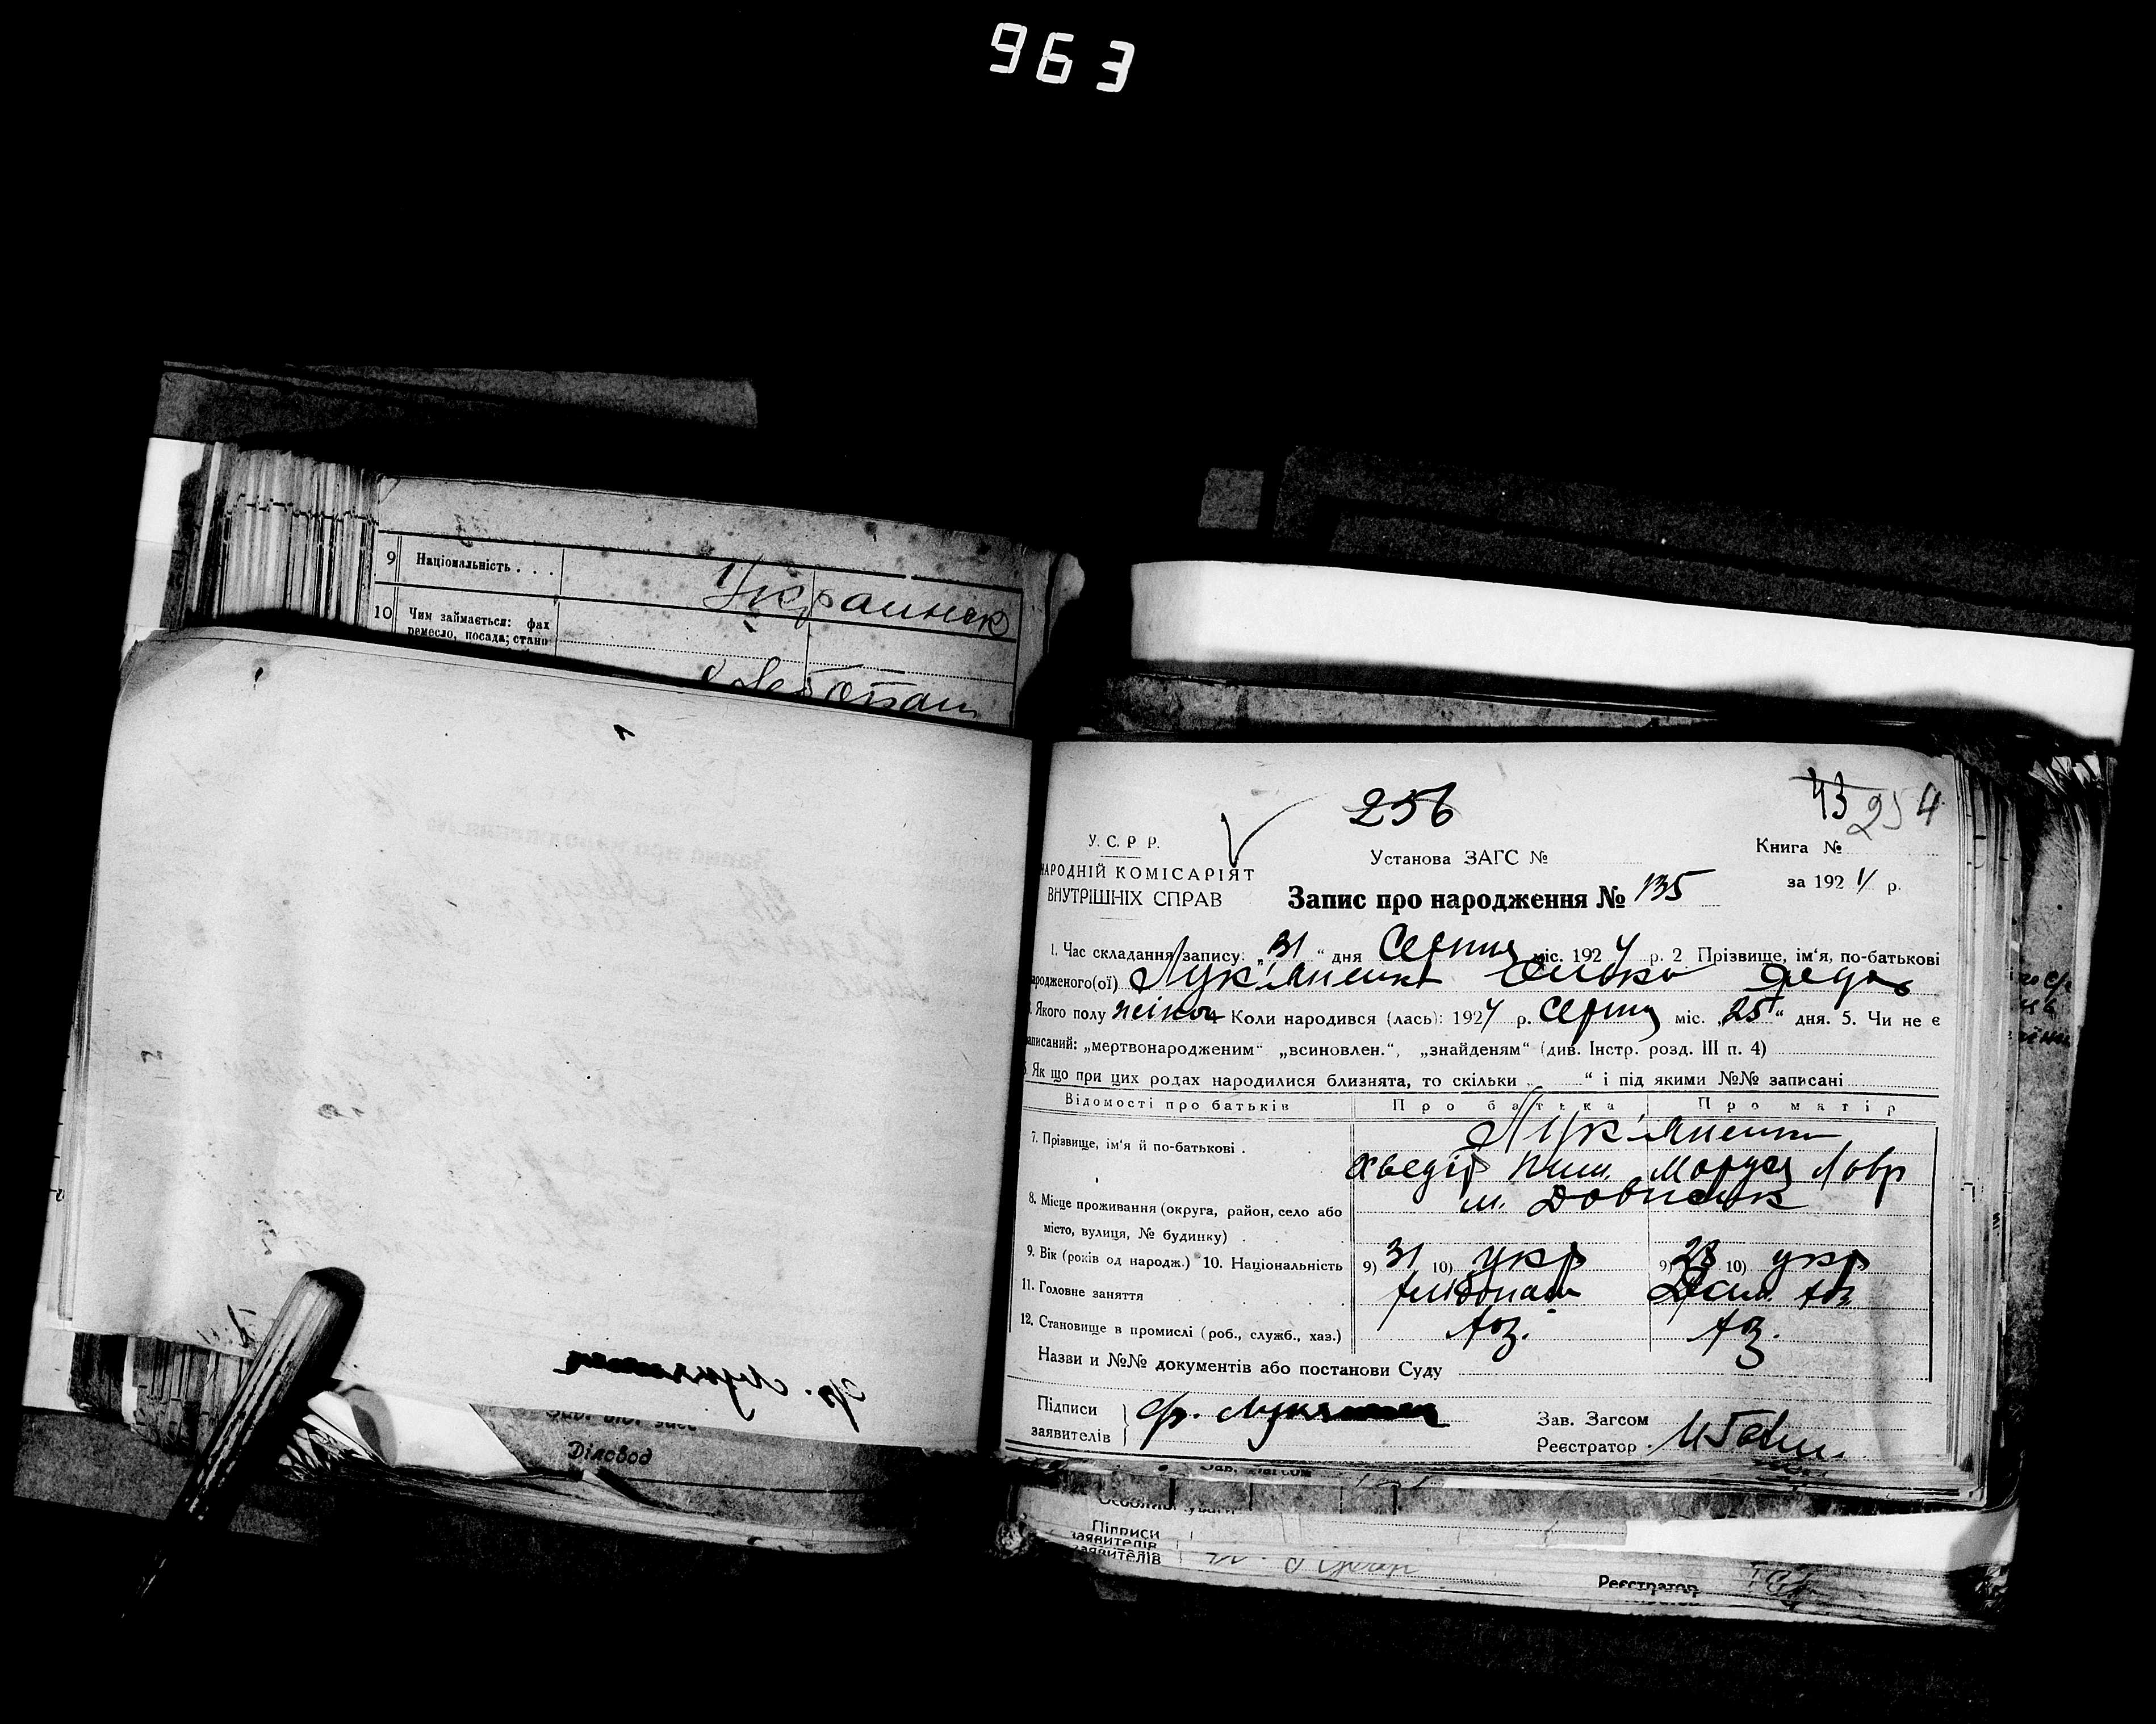 963
9 Національність . . . Украинск
10 Чим займається: фах
ремесло, посада; стано
Діловод
256
43 254
У. С. Р Р.
НАРОДНІЙ КОМІСАРІЯТ
ВНУТРІШНІХ СПРАВ
Установа ЗАГС №
Книга №
за 1924 р.
Запис про народження № 135
1. Час складання запису: „31“ дня Серпня міс. 1924 р. 2 Прізвище, ім‘я, по-батькові
ародженого(ої) Лук'яненко
Якого полу жіноч 4 Коли народився (лась): 1924 р. Серпня міс. „25“ дня. 5. Чи не є
аписаний: „мертвонародженим“ „всиновлен.“, „знайденям“ (див. Інстр. розд. III п. 4)
Як що при цих родах народилися близнята, то скільки “ і під якими №№ записані
Відомості про батьків Про батька Про матір
7. Прізвище, ім‘я й по-батькові . Лук'яненко
Хведір Пим. Маруся Лавр
8. Місце проживання (округа, район, село або м. Довисик
місто, вулиця, № будинку) .
9. Вік (років од народж.) 10. Національність 9) 31 10) укр 9) 28 10) укр
11. Головне заняття хлібопаш Дом. хоз
12. Становище в промислі (роб., служб., хаз.) хоз. хоз.
Назви и №№ документів або постанови Суду
Підписи
заявителів
Ф. Лук
Зав. Загсом
Реєстратор .
Підписи
заявителів
заявителів
Реєстратор